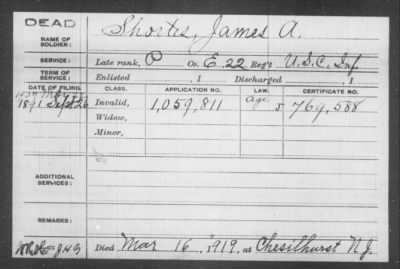 DEAD
NAME OF SOLDIER: Shorter, James A.
SERVICE: Late rank, P Co. E, 22 Reg't U.S.C. Inf.
TERM OF SERVICE: Enlisted , 1 Discharged , 1
DATE OF FILING. CLASS. APPLICATION NO. LAW. CERTIFICATE NO.
1891 Sept 26 Invalid, 1,059,811 Age 769,588
Widow,
Minor,
ADDITIONAL SERVICES:
REMARKS:
Died Mar 16, 1919, at Chesilhurst N.J.